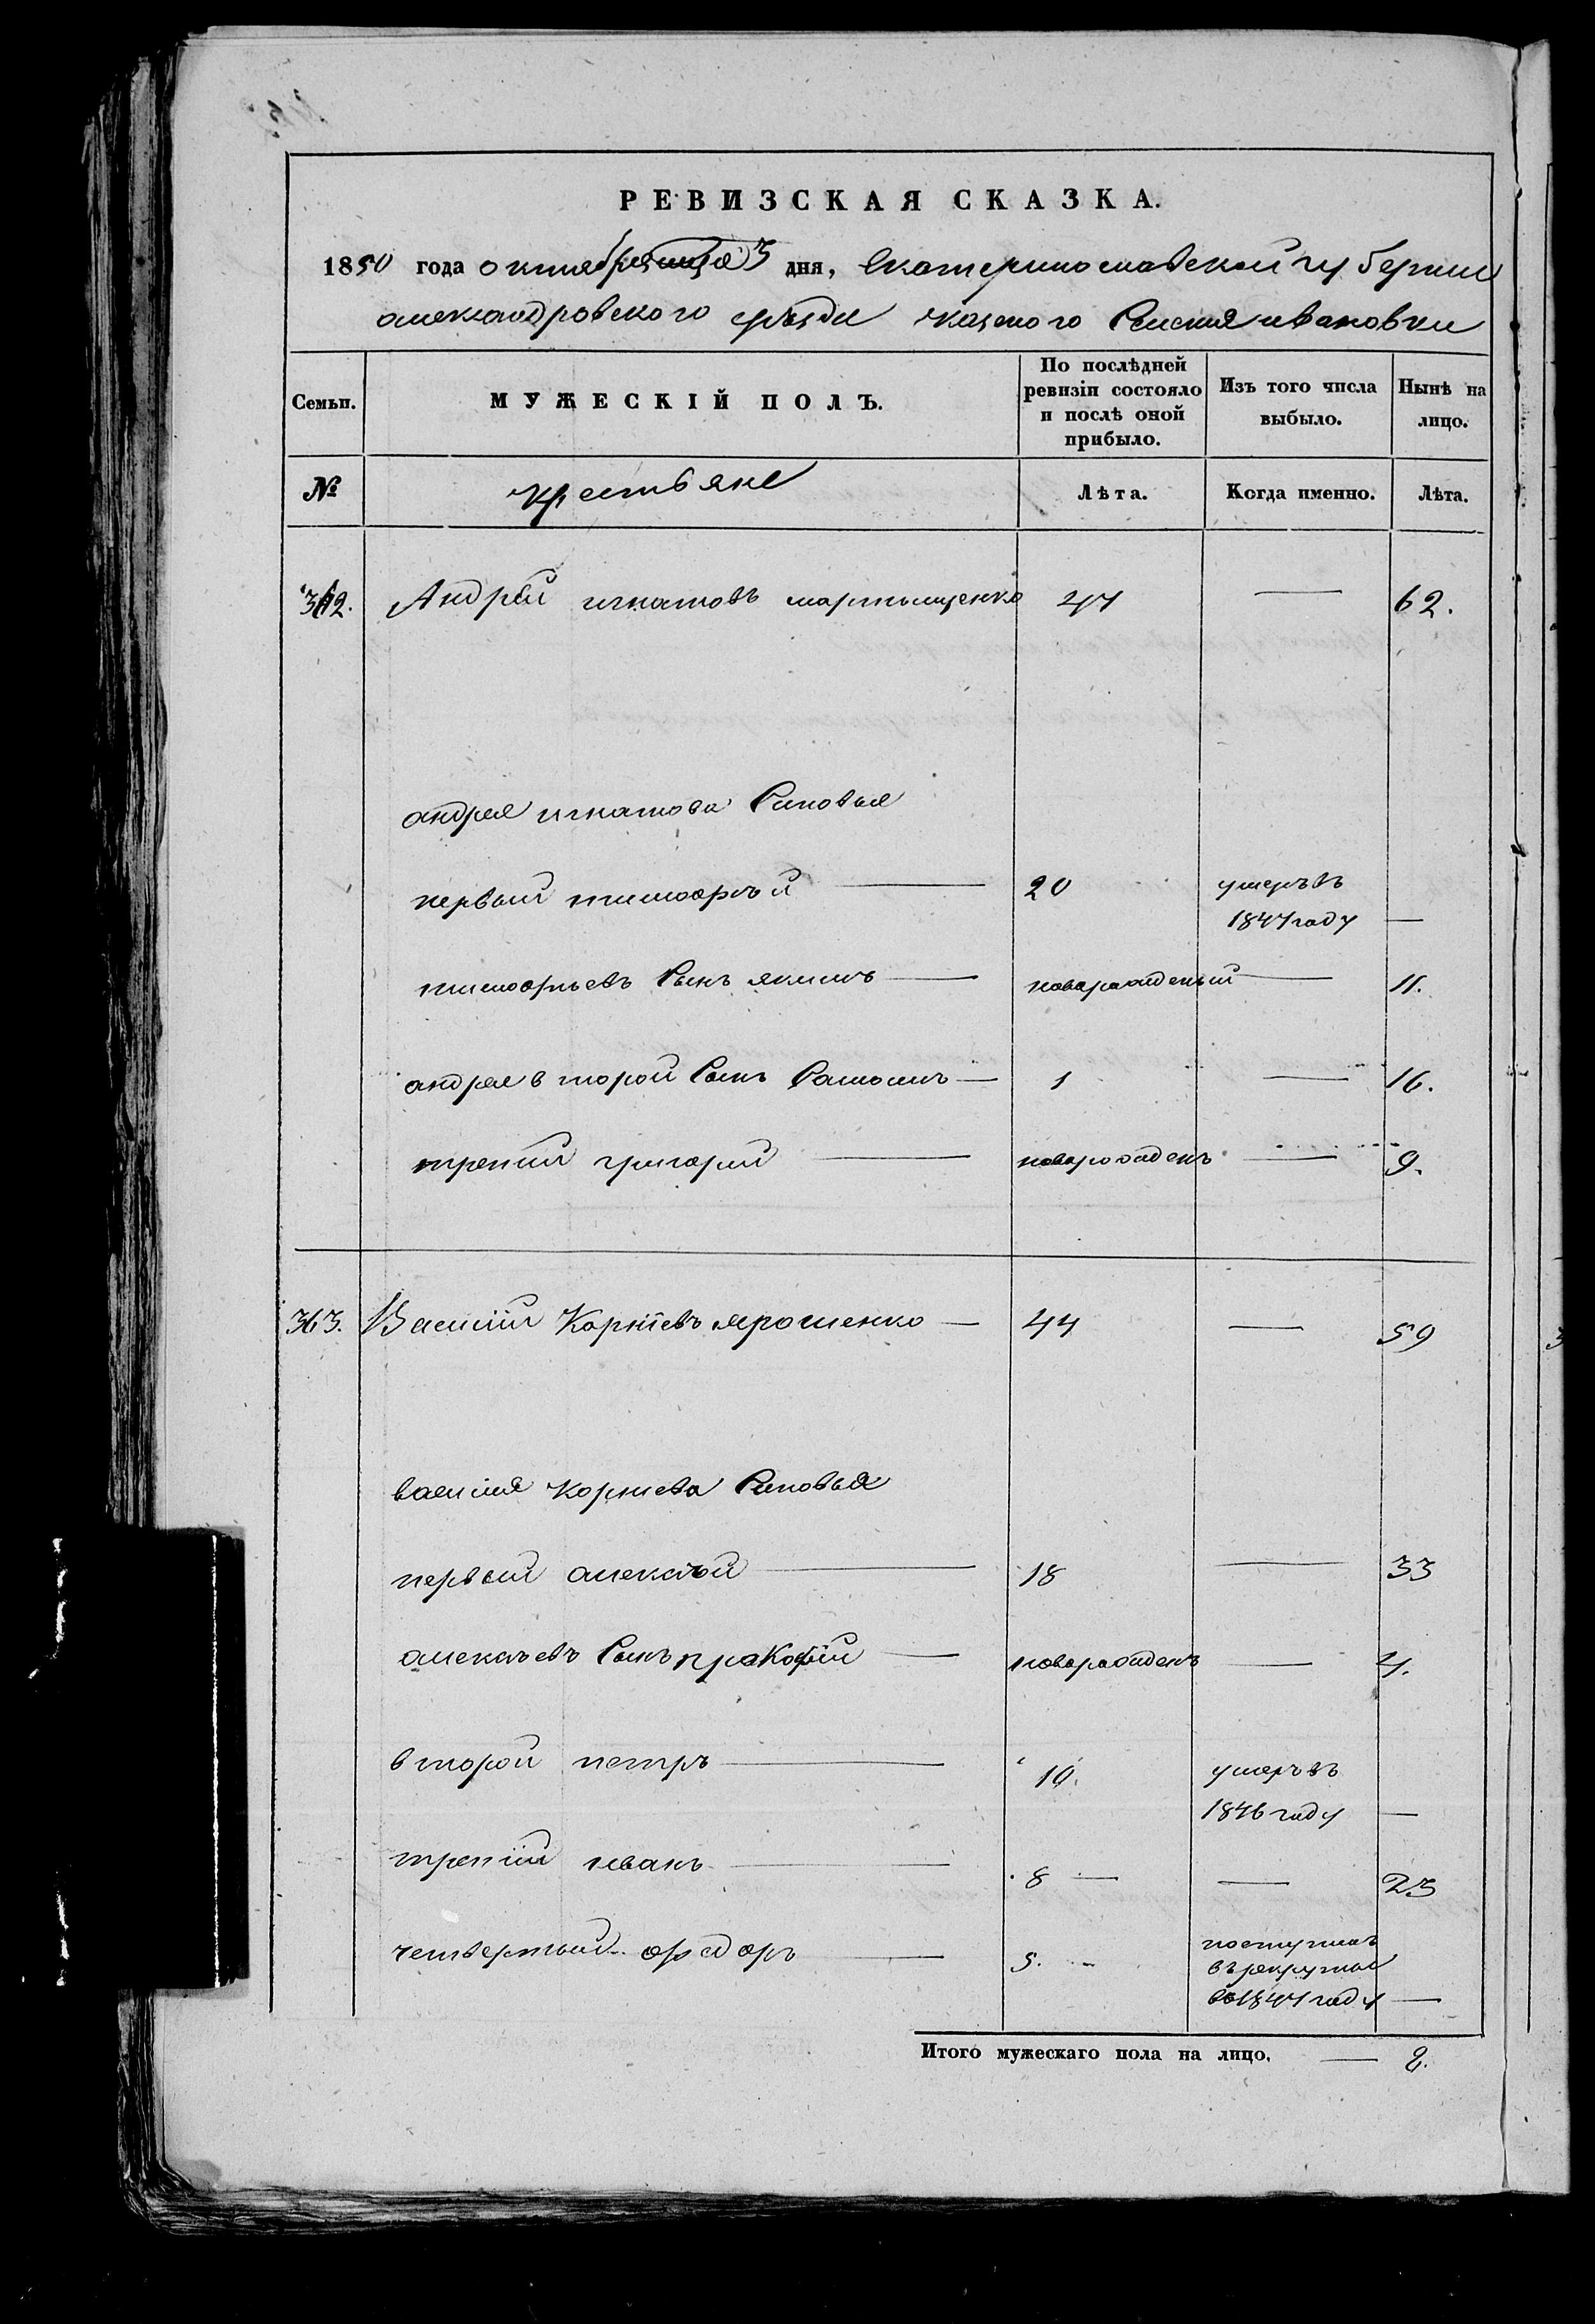 РЕВИЗСКАЯ СКАЗКА.
1850 года октября месяца 3 дня, екатеринославской губернии
александровского уезда казеного Селения ивановки
Семьи.
МУЖЕСКІЙ ПОЛЪ.
По послѣдней ревизіи состояло и послѣ оной прибыло.
Изъ того числа выбыло.
Нынѣ на лицо.
№ крестьяне Лѣта. Когда именно. Лѣта.
362. Андрей игнатовъ мартыщенко 47 — 62.
андрея игнатова Синовья
первый тимофѣй — 20 умеръ въ
1847 году —
тимофѣевъ Сынъ якимъ — новорожденый — 11.
андрея второй Сынъ Самоилъ — 1 — 16.
третий григорий — новорожденъ — 9.
363. Василий Корнѣевъ ярошенко — 44 — 59
василия Корнѣева Синовья
первый алексѣй — 18 — 33
алексѣевъ Сынъ прокофий — новорожденъ — 4.
второй петръ — 10. умеръ въ
1846 году —
третий иванъ — 8 — — 23
четвертый федоръ — 5. поступилъ
въ рекруты
в 1847 году —
Итого мужескаго пола на лицо. — 8.